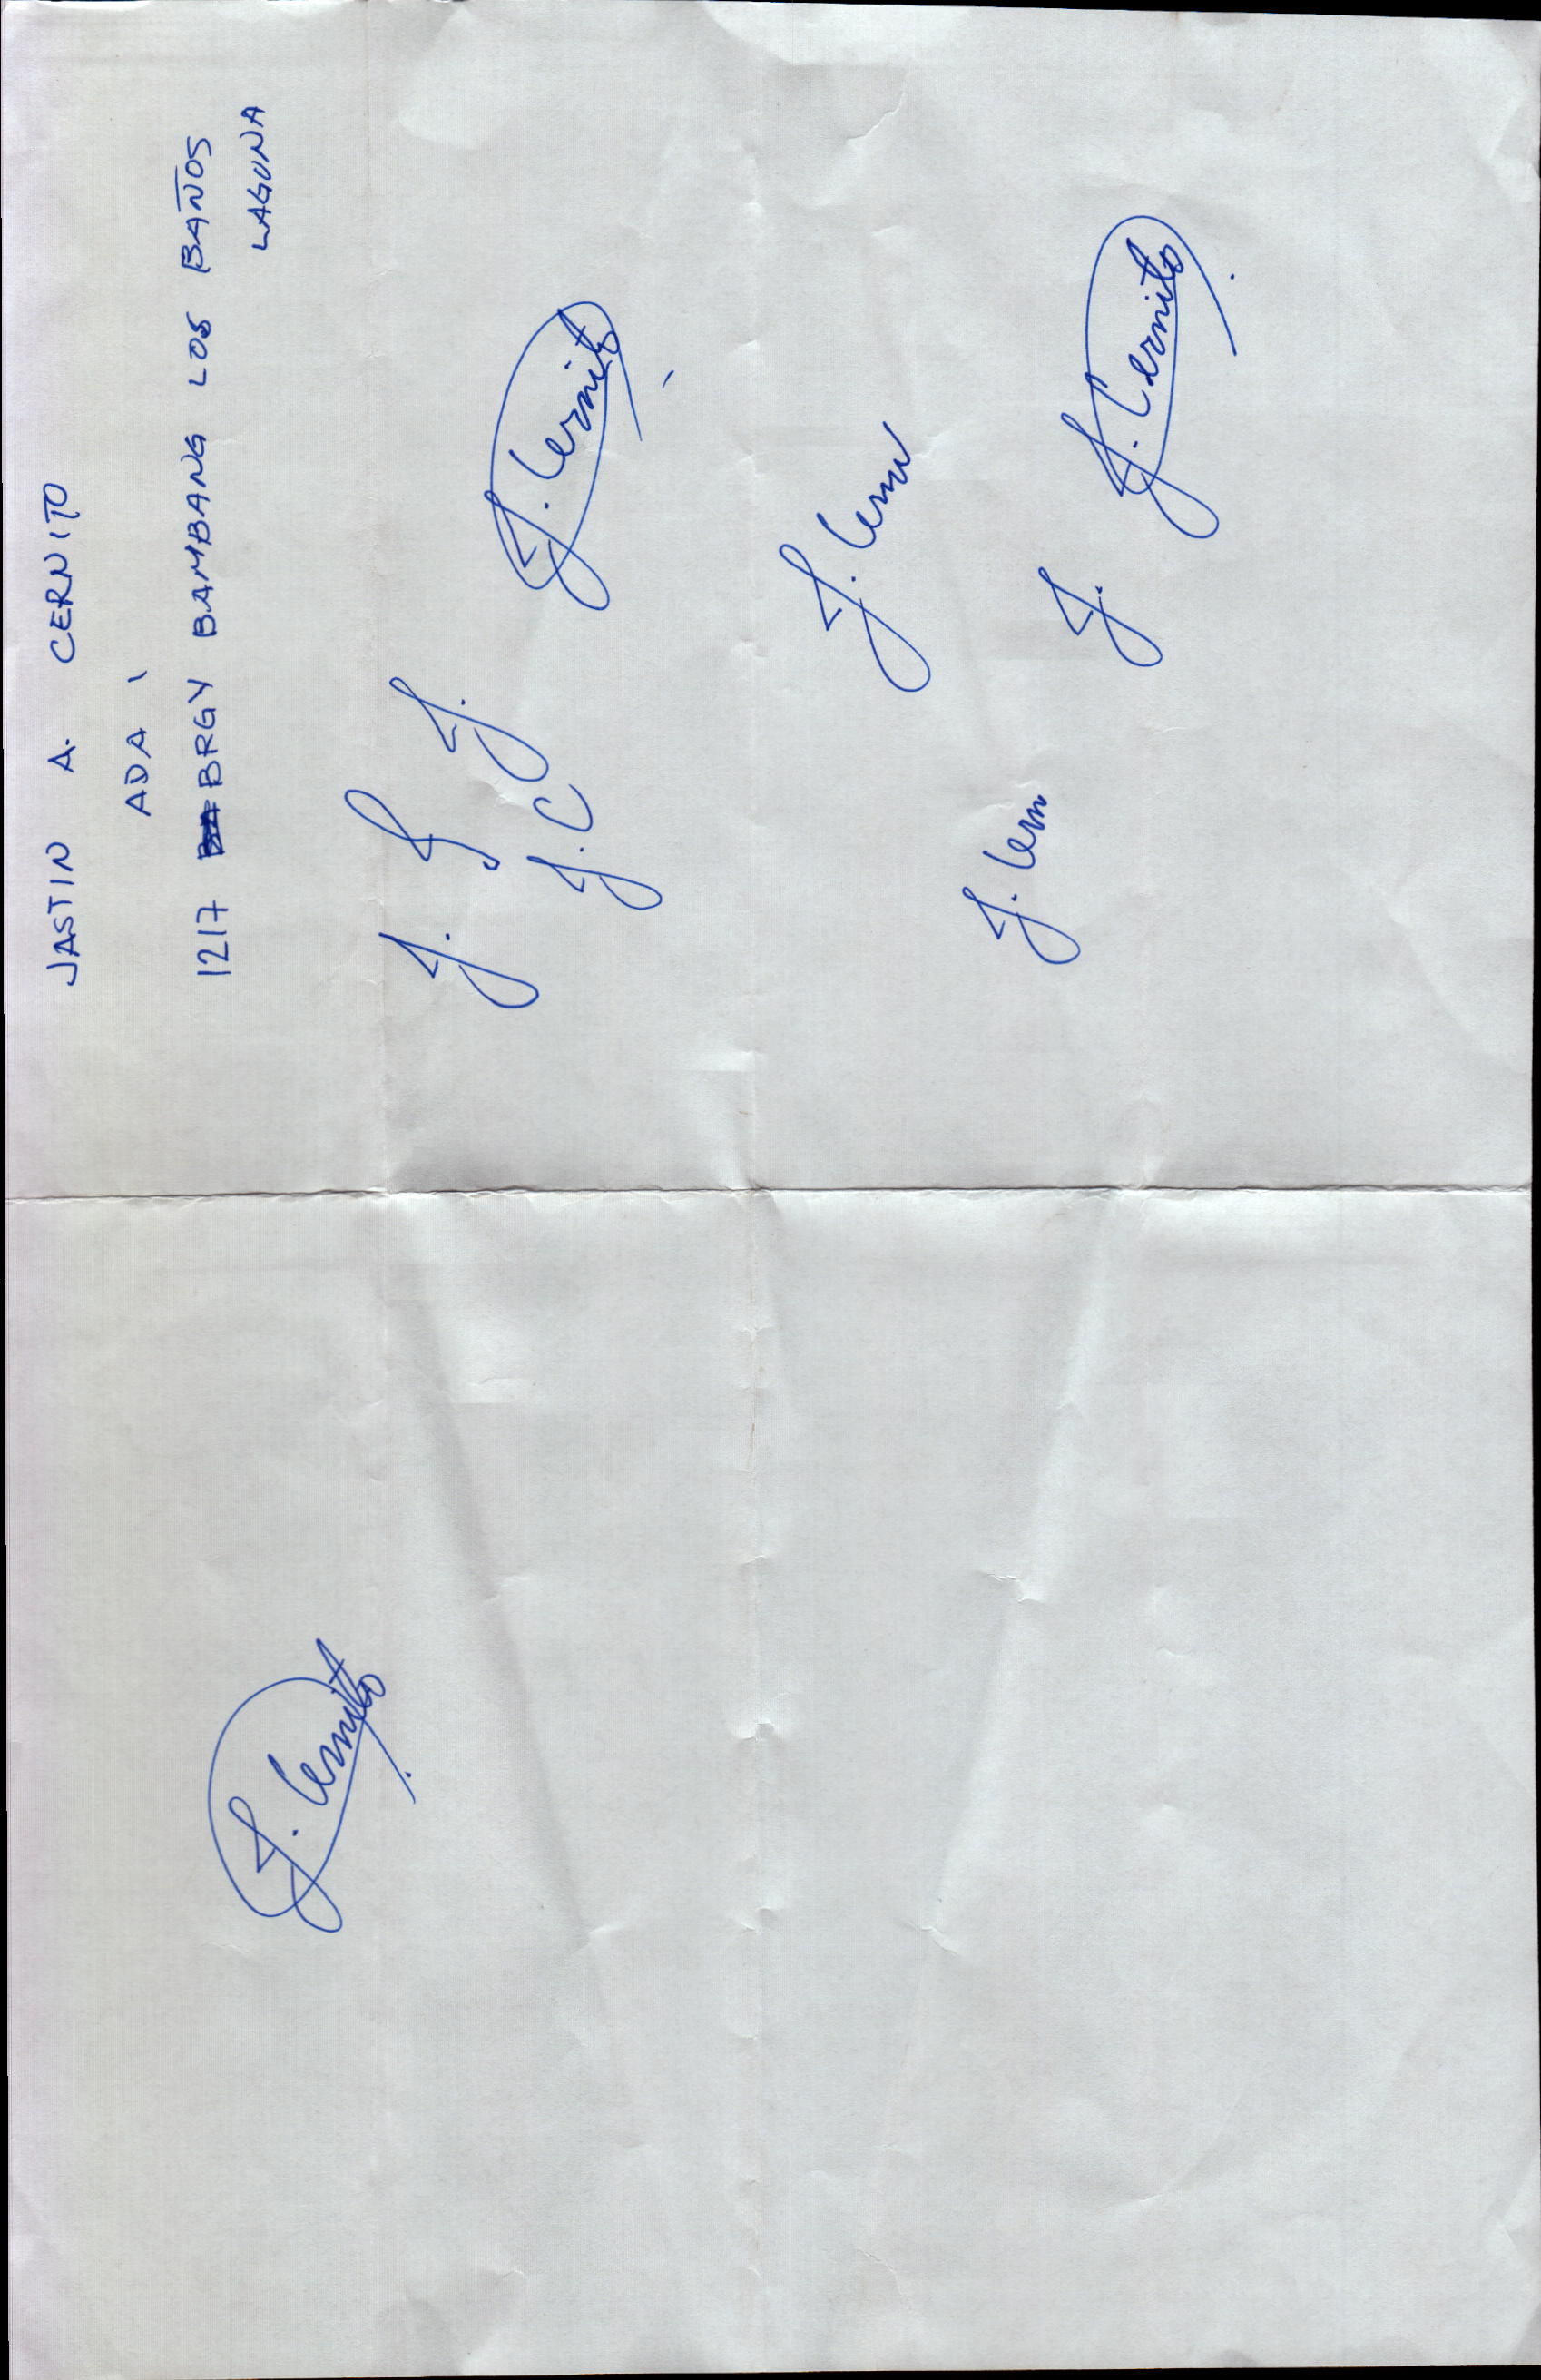 JASTIN A. CERNITO
ADA
1217 BRGY BAMBANG LOS BAÑOS
LAGUNA
J.
J.
J. C
J. Cernito
J. Cern
J. Cern
J.
J. Cernito
J. Cernito